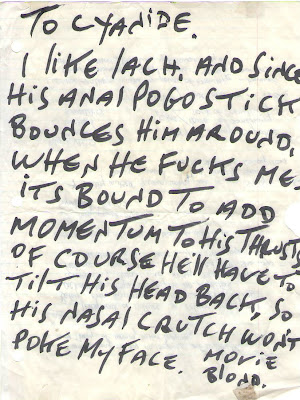 TO CYANIDE.
I LIKE LACH. AND SINCE
HIS ANAL POGO STICK
BOUNCES HIM AROUND,
WHEN HE FUCKS ME
ITS BOUND TO ADD
MOMENTUM TO HIS THRUSTS
OF COURSE HE'll HAVE TO
TILT HIS HEAD BACK, SO
HIS NASAL CRUTCH WON'T
POKE MY FACE. MOVIE
BLOND.